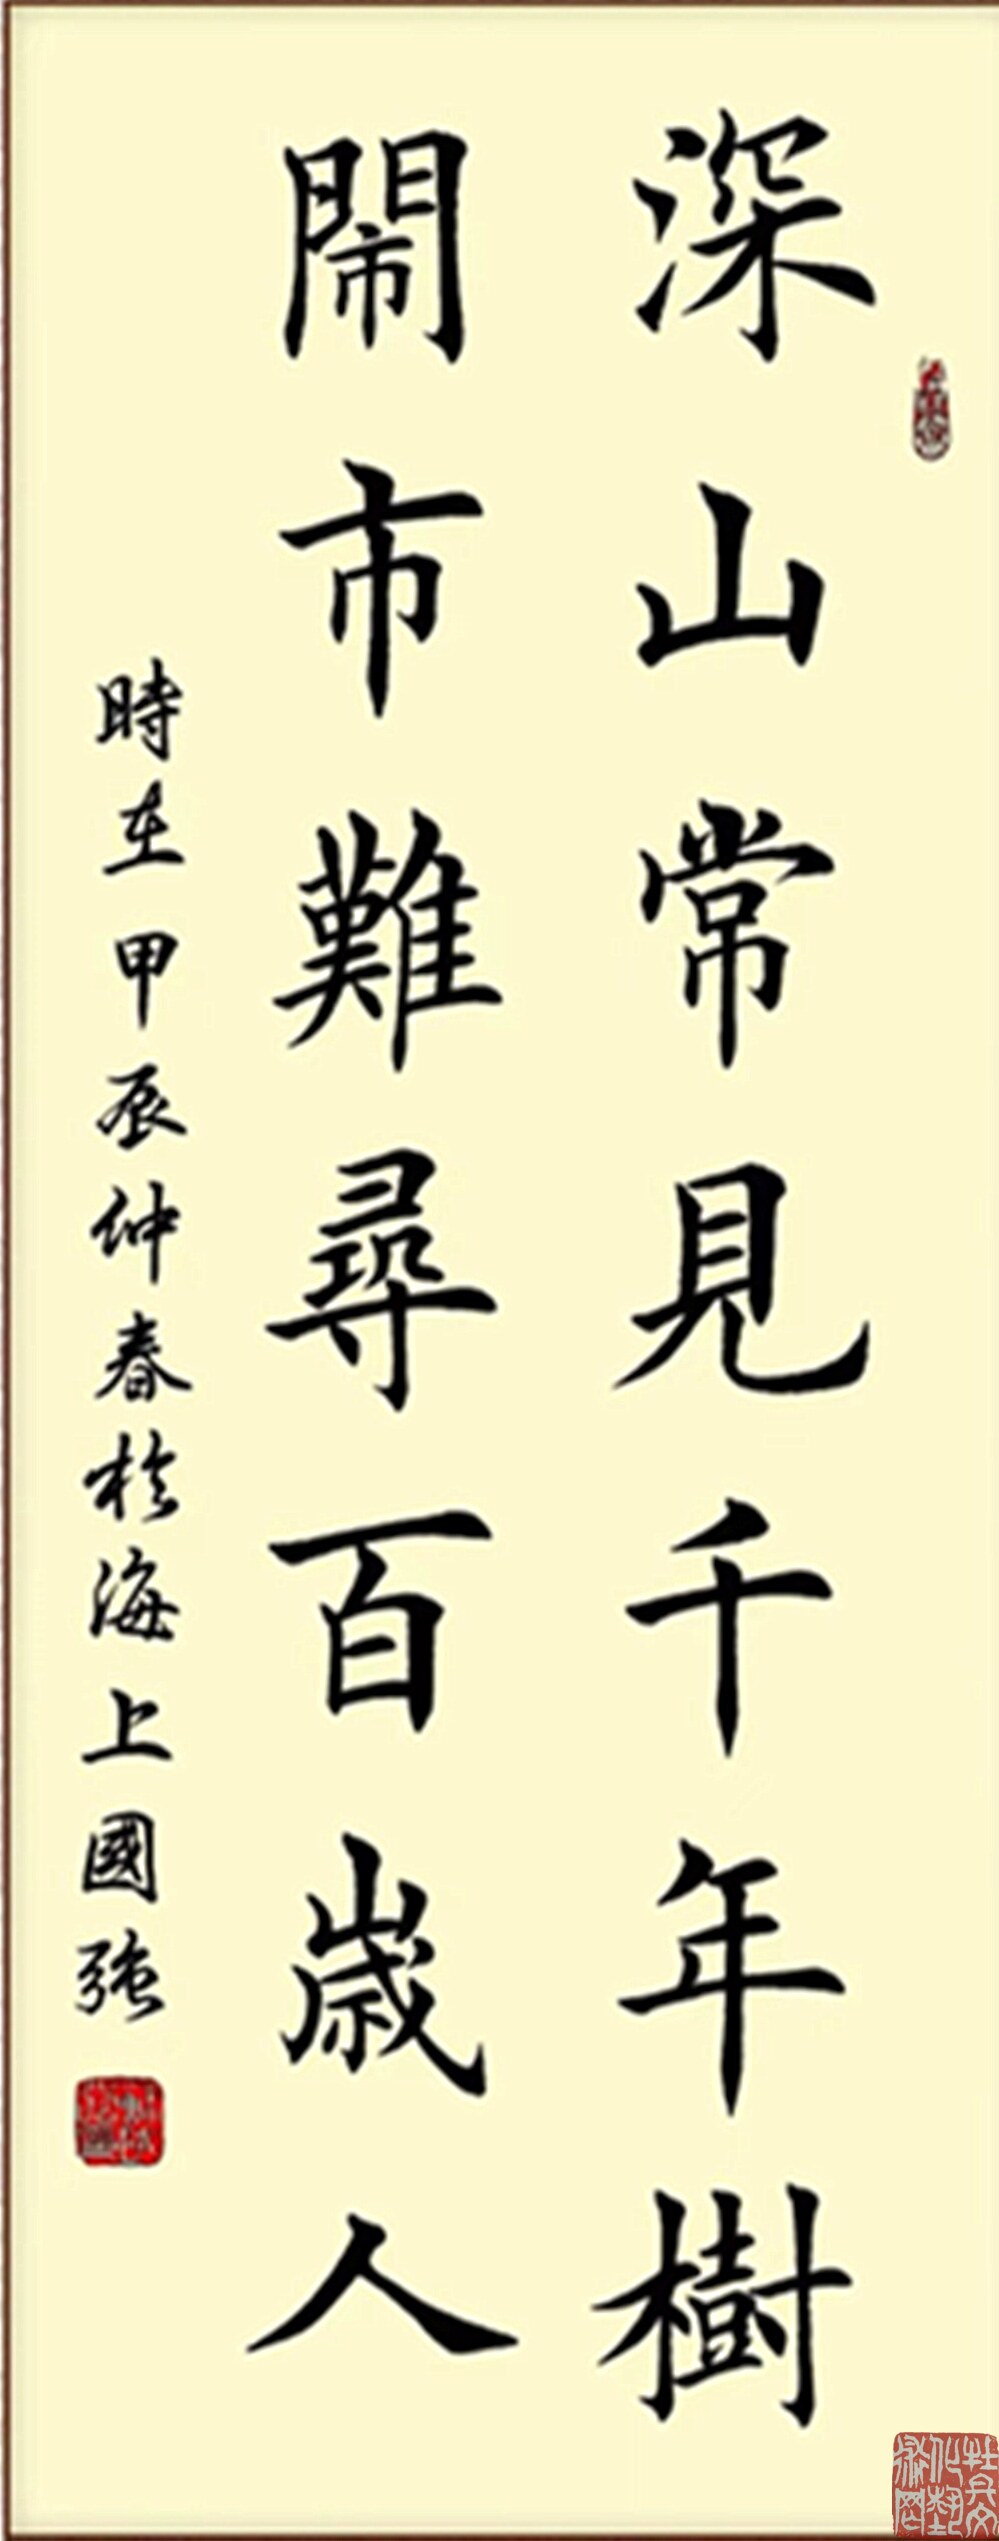 深山常見千年樹
鬧市難尋百歲人
時在甲辰仲春於海上國強